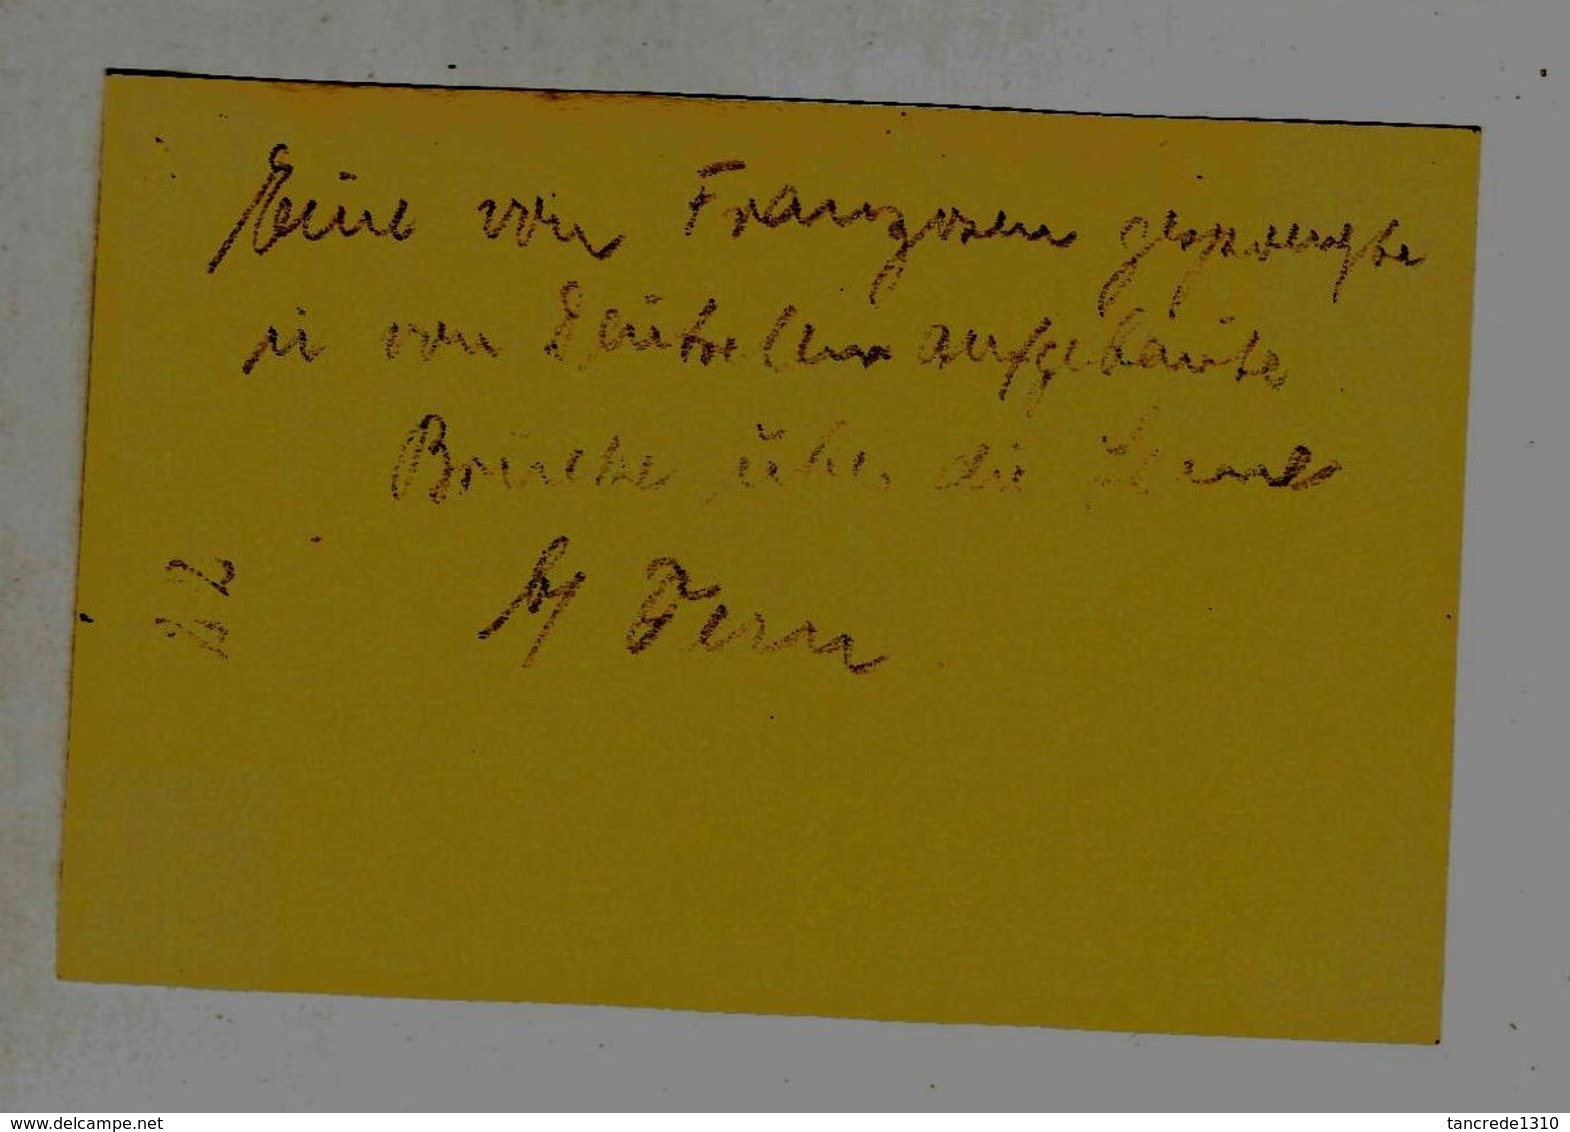 Eine von Franzosen gesprengte
u von Deutschen aufgebaute
Brücke über die
b/
B2
www.delcampe.net
tancrede1310